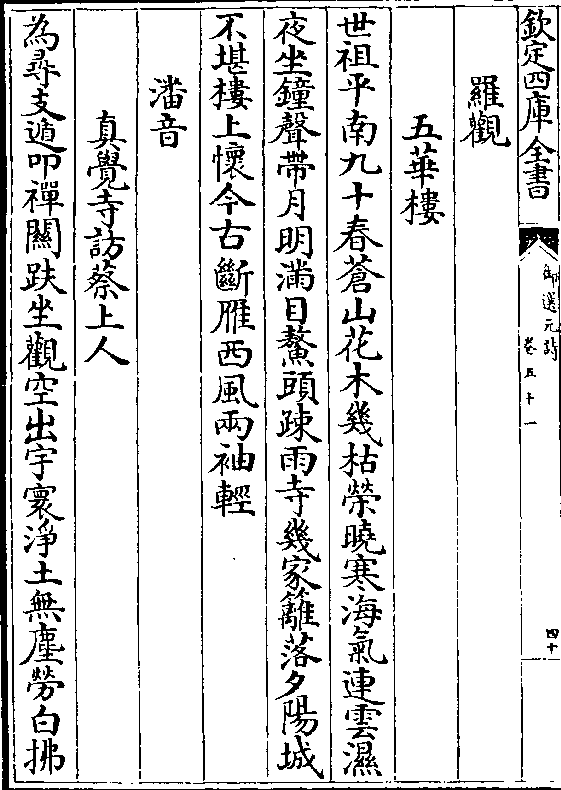 欽定四庫全書
御選元詩
卷五十一
四十
羅觀
五華樓
世祖平南九十春蒼山花木幾枯榮曉寒海氣連雲濕
夜坐鐘聲帶月明滿目鰲頭疎雨寺幾家籬落夕陽城
不堪樓上懷今古斷雁西風兩袖輕
潘音
真覺寺訪蔡上人
為尋支遁叩禪關趺坐觀空出宇寰淨土無塵勞白拂